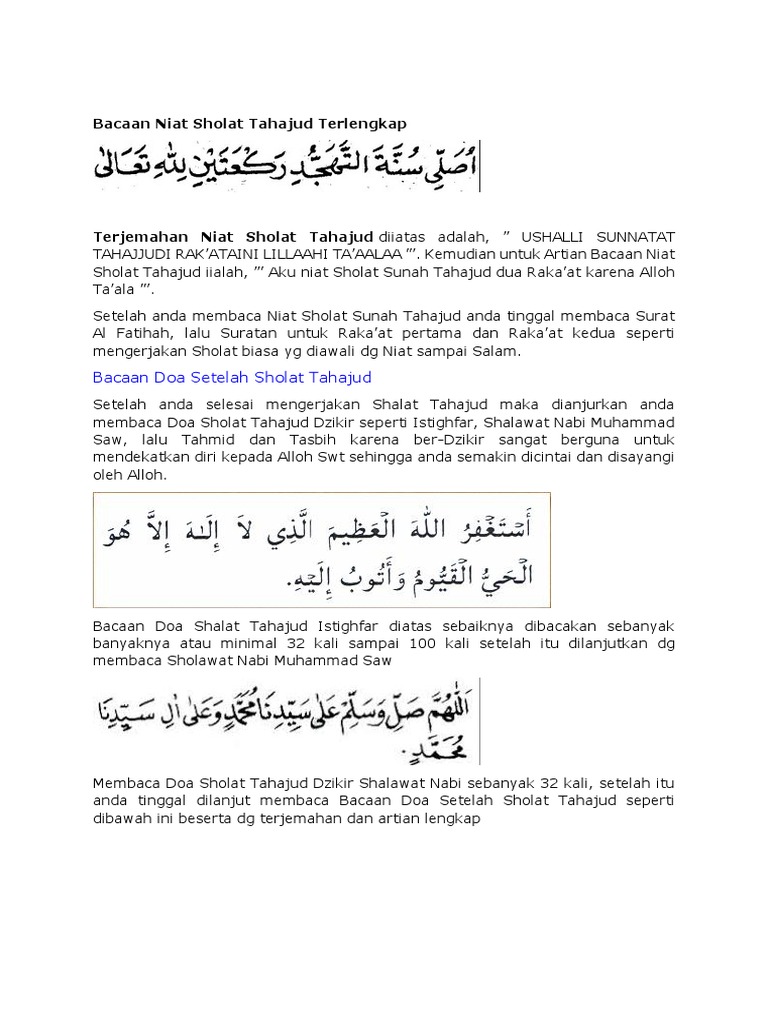 Bacaan Niat Sholat Tahajud Terlengkap
اُصَلِّى سُنَّةَ التَّهَجُّدِ رَكْعَتَيْنِ لِلّٰهِ تَعَالٰى
Terjemahan Niat Sholat Tahajud diiatas adalah, ” USHALLI SUNNATAT
TAHAJJUDI RAK’ATAINI LILLAAHI TA’AALAA ”’. Kemudian untuk Artian Bacaan Niat
Sholat Tahajud iialah, ”’ Aku niat Sholat Sunah Tahajud dua Raka’at karena Alloh
Ta’ala ”’.
Setelah anda membaca Niat Sholat Sunah Tahajud anda tinggal membaca Surat
Al Fatihah, lalu Suratan untuk Raka’at pertama dan Raka’at kedua seperti
mengerjakan Sholat biasa yg diawali dg Niat sampai Salam.
Bacaan Doa Setelah Sholat Tahajud
Setelah anda selesai mengerjakan Shalat Tahajud maka dianjurkan anda
membaca Doa Sholat Tahajud Dzikir seperti Istighfar, Shalawat Nabi Muhammad
Saw, lalu Tahmid dan Tasbih karena ber-Dzikir sangat berguna untuk
mendekatkan diri kepada Alloh Swt sehingga anda semakin dicintai dan disayangi
oleh Alloh.
أَسْتَغْفِرُ اللهَ الْعَظِيمَ الَّذِي لاَ إِلَـٰهَ إِلاَّ هُوَ
الْحَيُّ الْقَيُّومُ وَأَتُوبُ إِلَيْهِ.
Bacaan Doa Shalat Tahajud Istighfar diatas sebaiknya dibacakan sebanyak
banyaknya atau minimal 32 kali sampai 100 kali setelah itu dilanjutkan dg
membaca Sholawat Nabi Muhammad Saw
اَللّٰهُمَّ صَلِّ وَسَلِّمْ عَلٰى سَيِّدِنَا مُحَمَّدٍ وَعَلٰى اٰلِ سَيِّدِنَا
مُحَمَّدٍ.
Membaca Doa Sholat Tahajud Dzikir Shalawat Nabi sebanyak 32 kali, setelah itu
anda tinggal dilanjut membaca Bacaan Doa Setelah Sholat Tahajud seperti
dibawah ini beserta dg terjemahan dan artian lengkap